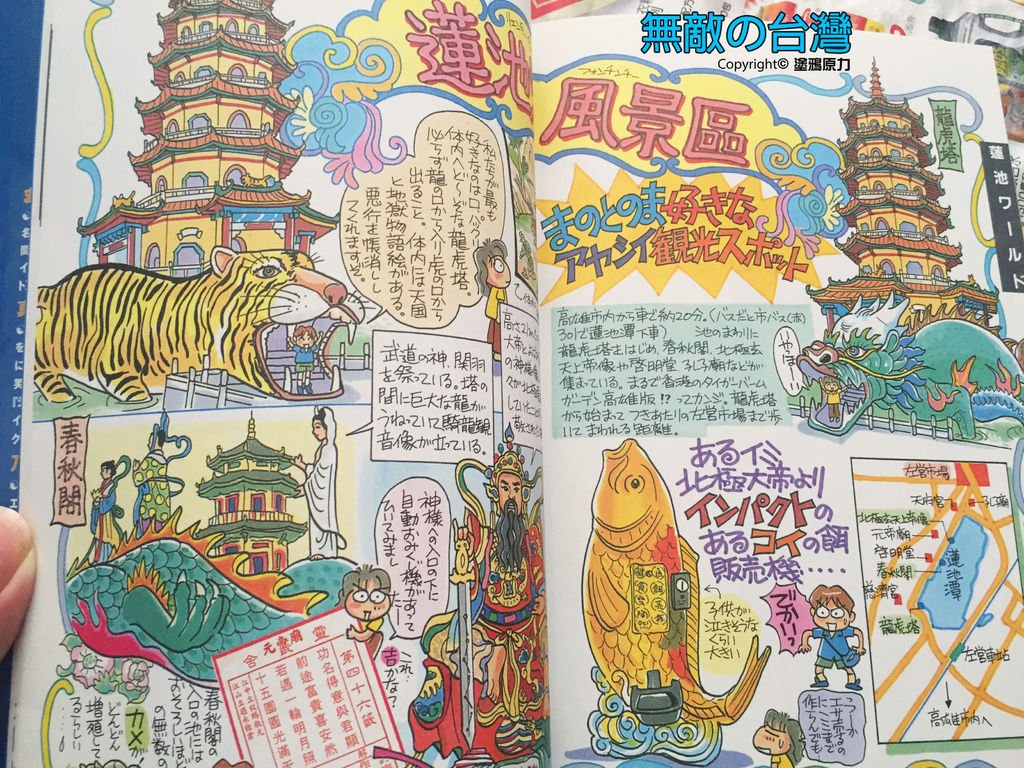 無敵の台灣
Copyright© 塗鴉原力
蓮池
風景區
フォンチンチー
龍虎塔
蓮池ワールド
まのとのま好きな
アヤシイ観光スポット
私たちが最も
好きなのはココ、パクリと
体内へど〜ぞな龍虎塔。
必ず龍の口から入り虎の口から
出ること。体内には天国
と地獄物語絵がある。
悪行を帳消し
してくれますぞ。
高雄市内から車で約20分。(バスだと市バス(赤)
301で蓮池潭下車) 池のまわりに
龍虎塔をはじめ、春秋閣、北極玄
天上帝像や啓明堂、孔子廟などが
集まっている。まるで香港のタイガーバーム
ガーデン高雄版!?ってカンジ。龍虎塔
から始まってつきあたりの左營市場まで歩
いてまわれる距離。
やほ〜
武道の神、関羽
を祭っている。塔の
間に巨大な龍が
うねっていて騎龍観
音像が立っている。
春秋閣
神様への入口の下に
自動おみくじ機があって
ひいてみまし
たー
吉
かな?
第四十六籤
功名得意與君顯
前途富貴喜安然
若遇一輪明月照
十五團圓光滿
春秋閣の
入口の池には
の無数の
カメが
どんどん
増殖して
るらしい
あるイミ
北極大帝より
インパクトの
あるコイの餌
販売機・・・・・
子供が
泣きそうな
くらい
大きい
でかい?
左営市場
天府宮
孔子廟
北極玄天上帝像
元帝廟
啓明堂
春秋閣
慈濟宮
蓮池潭
龍虎塔
左営車站
高雄市内へ